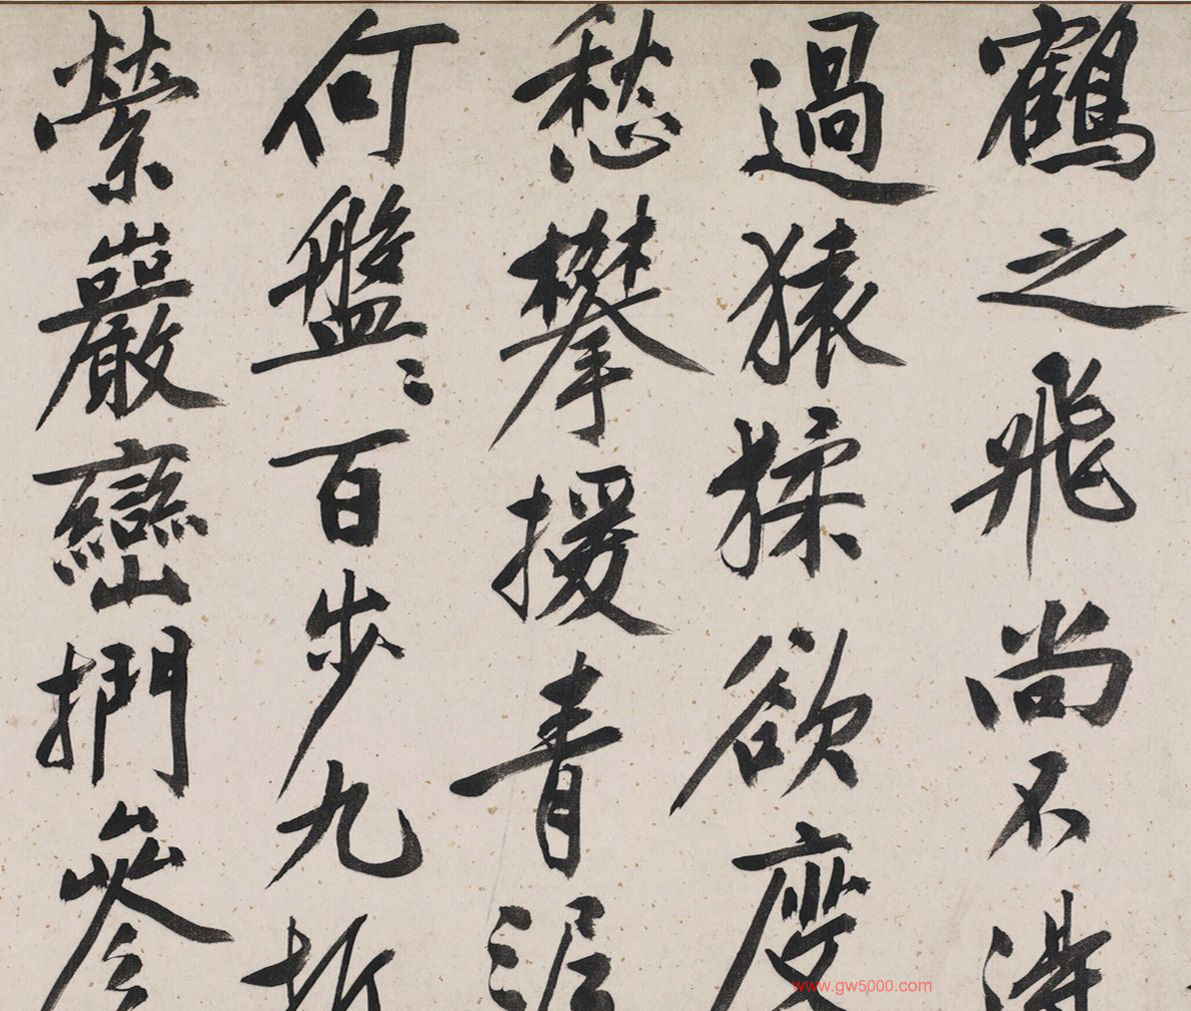 鶴之飛尚不得
過猿猱欲度
愁攀援青泥
何盤〻百步九折
縈巖巒捫參
www.gw5000.com